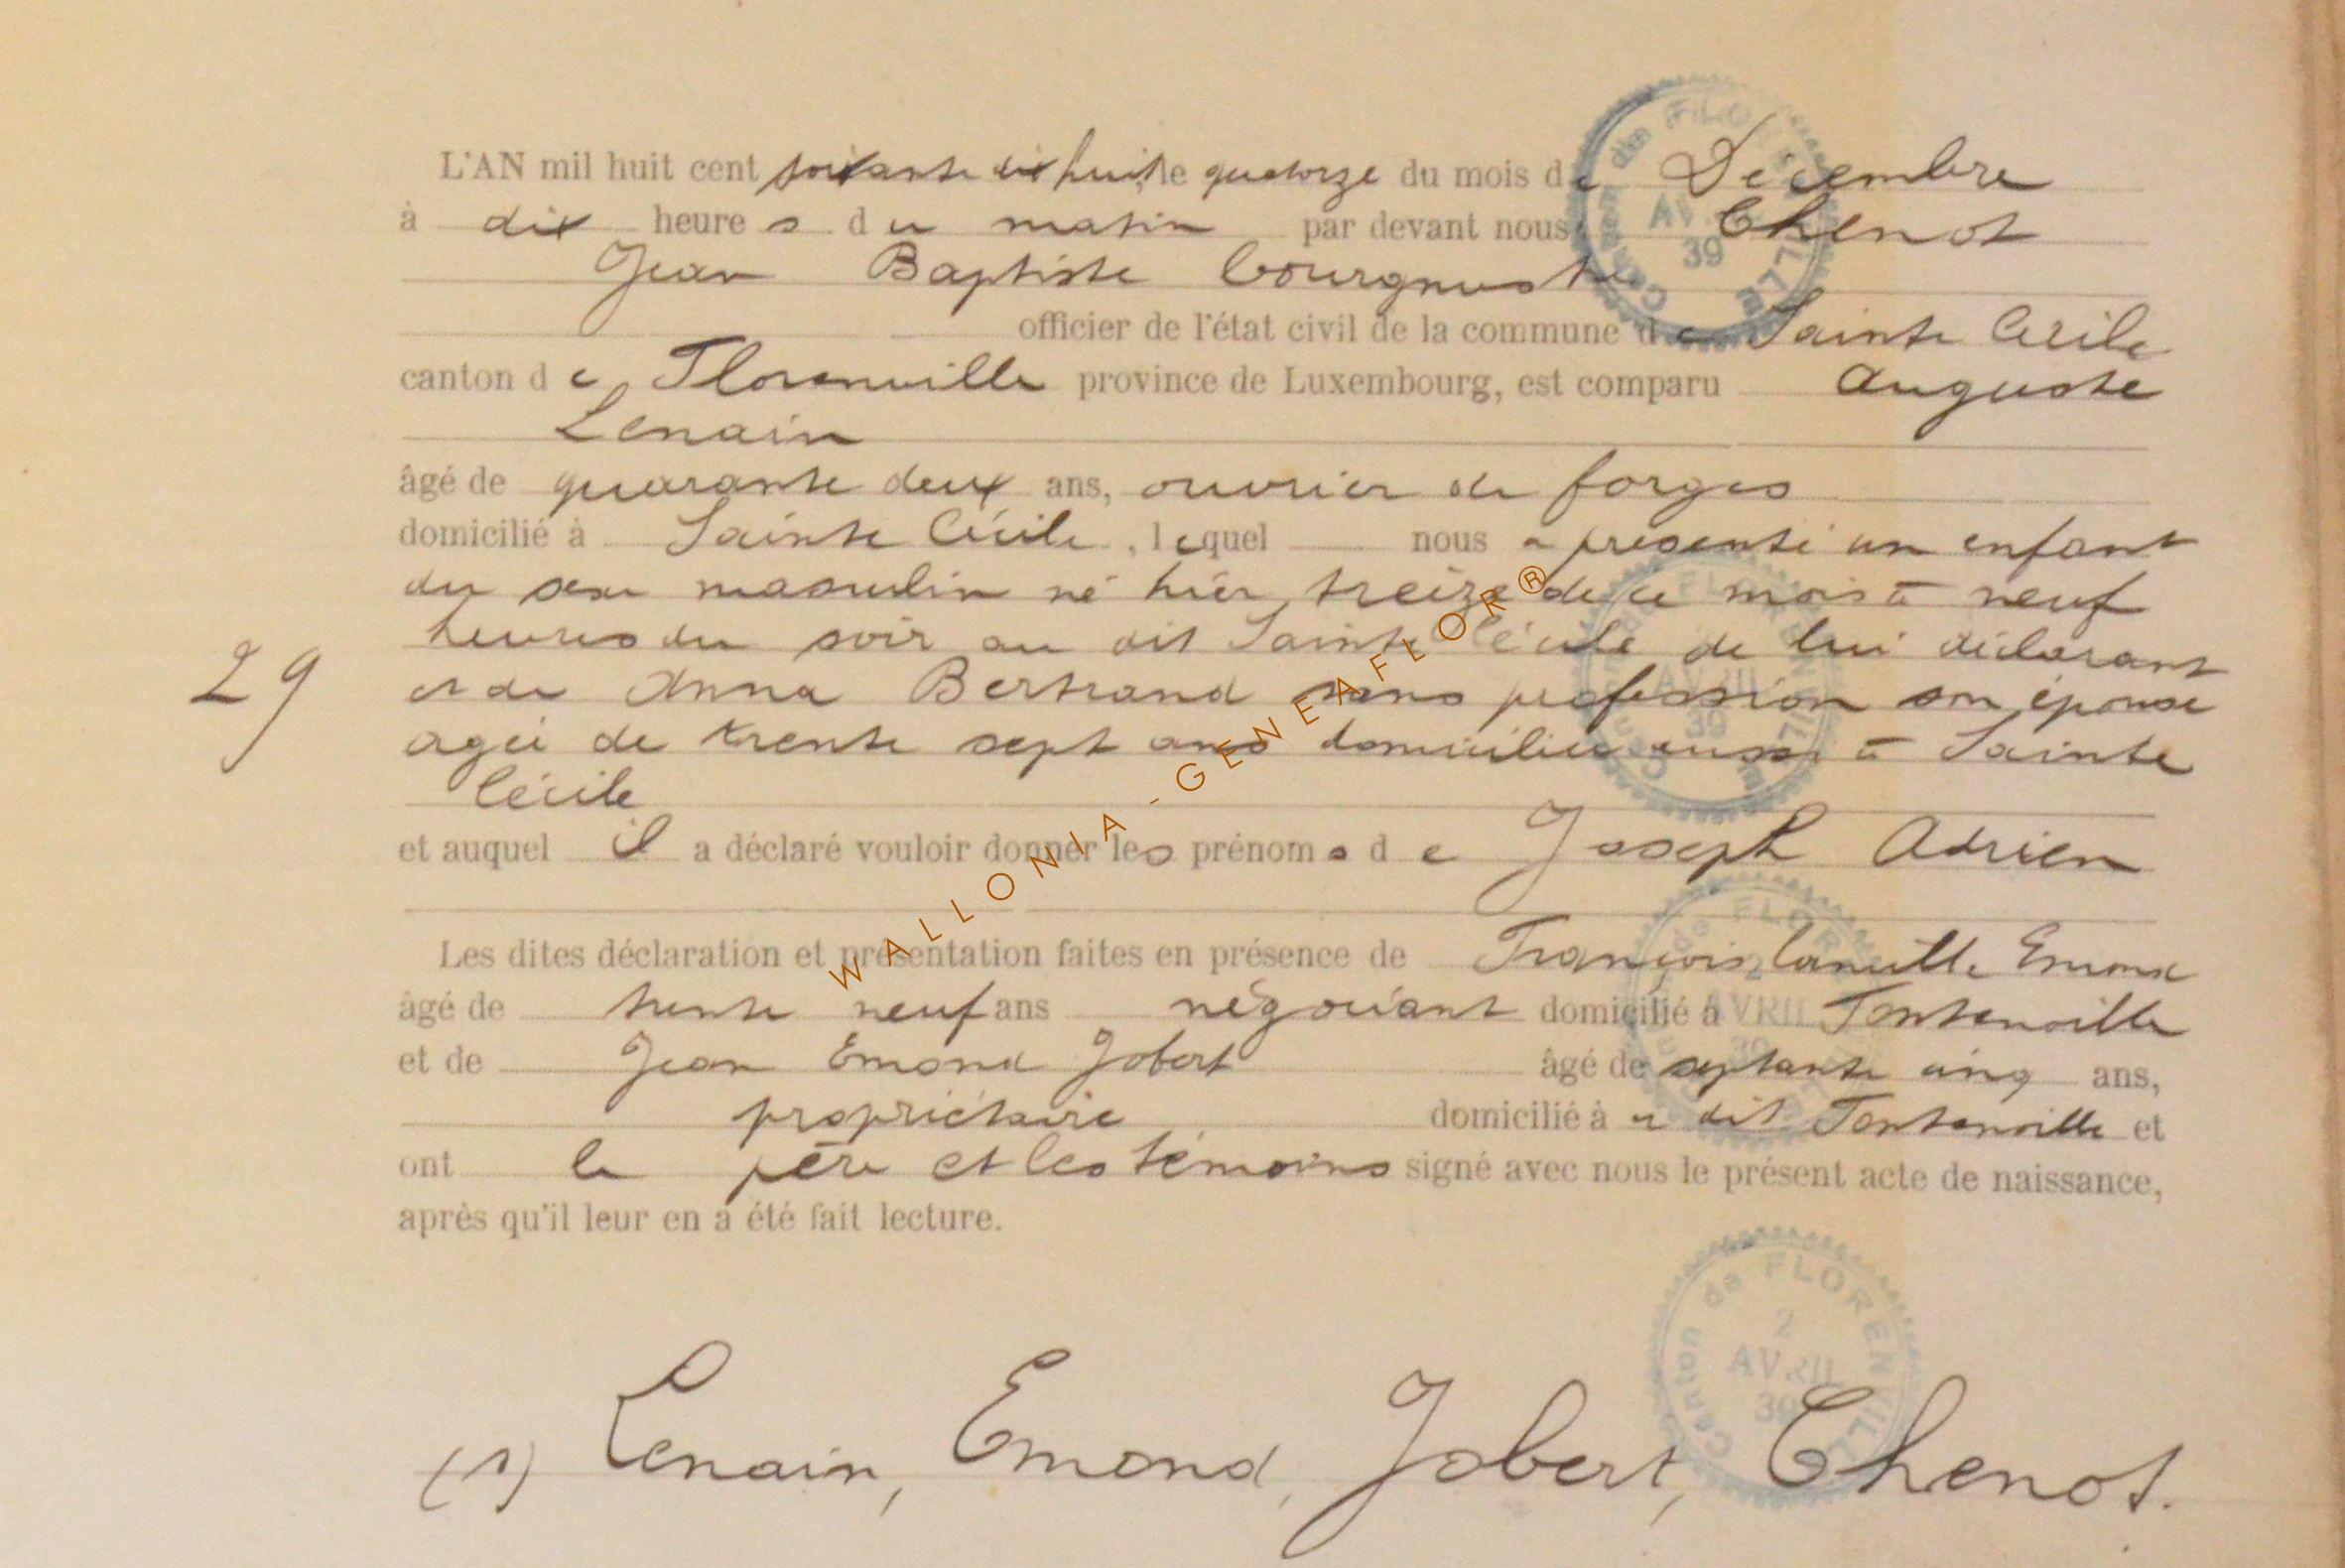 L'AN mil huit cent soixante dix huit, le quatorze du mois de Décembre
à dix heures du matin par devant nous Chenot
Jean Baptiste
officier de l'état civil de la commune de Sainte Cécile
canton de Florenville province de Luxembourg, est comparu Auguste
Lenain
âgé de quarante deux ans, ouvrier de forges
domicilié à Sainte Cécile, lequel nous a présenté un enfant
du sexe masculin né hier treize de ce mois à neuf
heures du soir au dit Sainte Cécile de lui déclarant
29
et de Anna Bertrand sans profession son épouse
agée de trente sept ans domiciliée aussi à Sainte
Cécile
et auquel il a déclaré vouloir donner les prénoms de Joseph Adrien
Les dites déclaration et présentation faites en présence de François Camille Emond
âgé de trente neuf ans négociant domicilié à Fontenoille
et de Jean Emond Jobert âgé de septante cinq ans,
propriétaire domicilié à u dit Fontenoille et
ont le père et les témoins signé avec nous le présent acte de naissance,
après qu'il leur en a été fait lecture.
(1) Lenain, Emond, Jobert, Chenot.
WALLONIA - GENEAFLOR®
Canton de FLORENVILLE
2
AVRIL
39